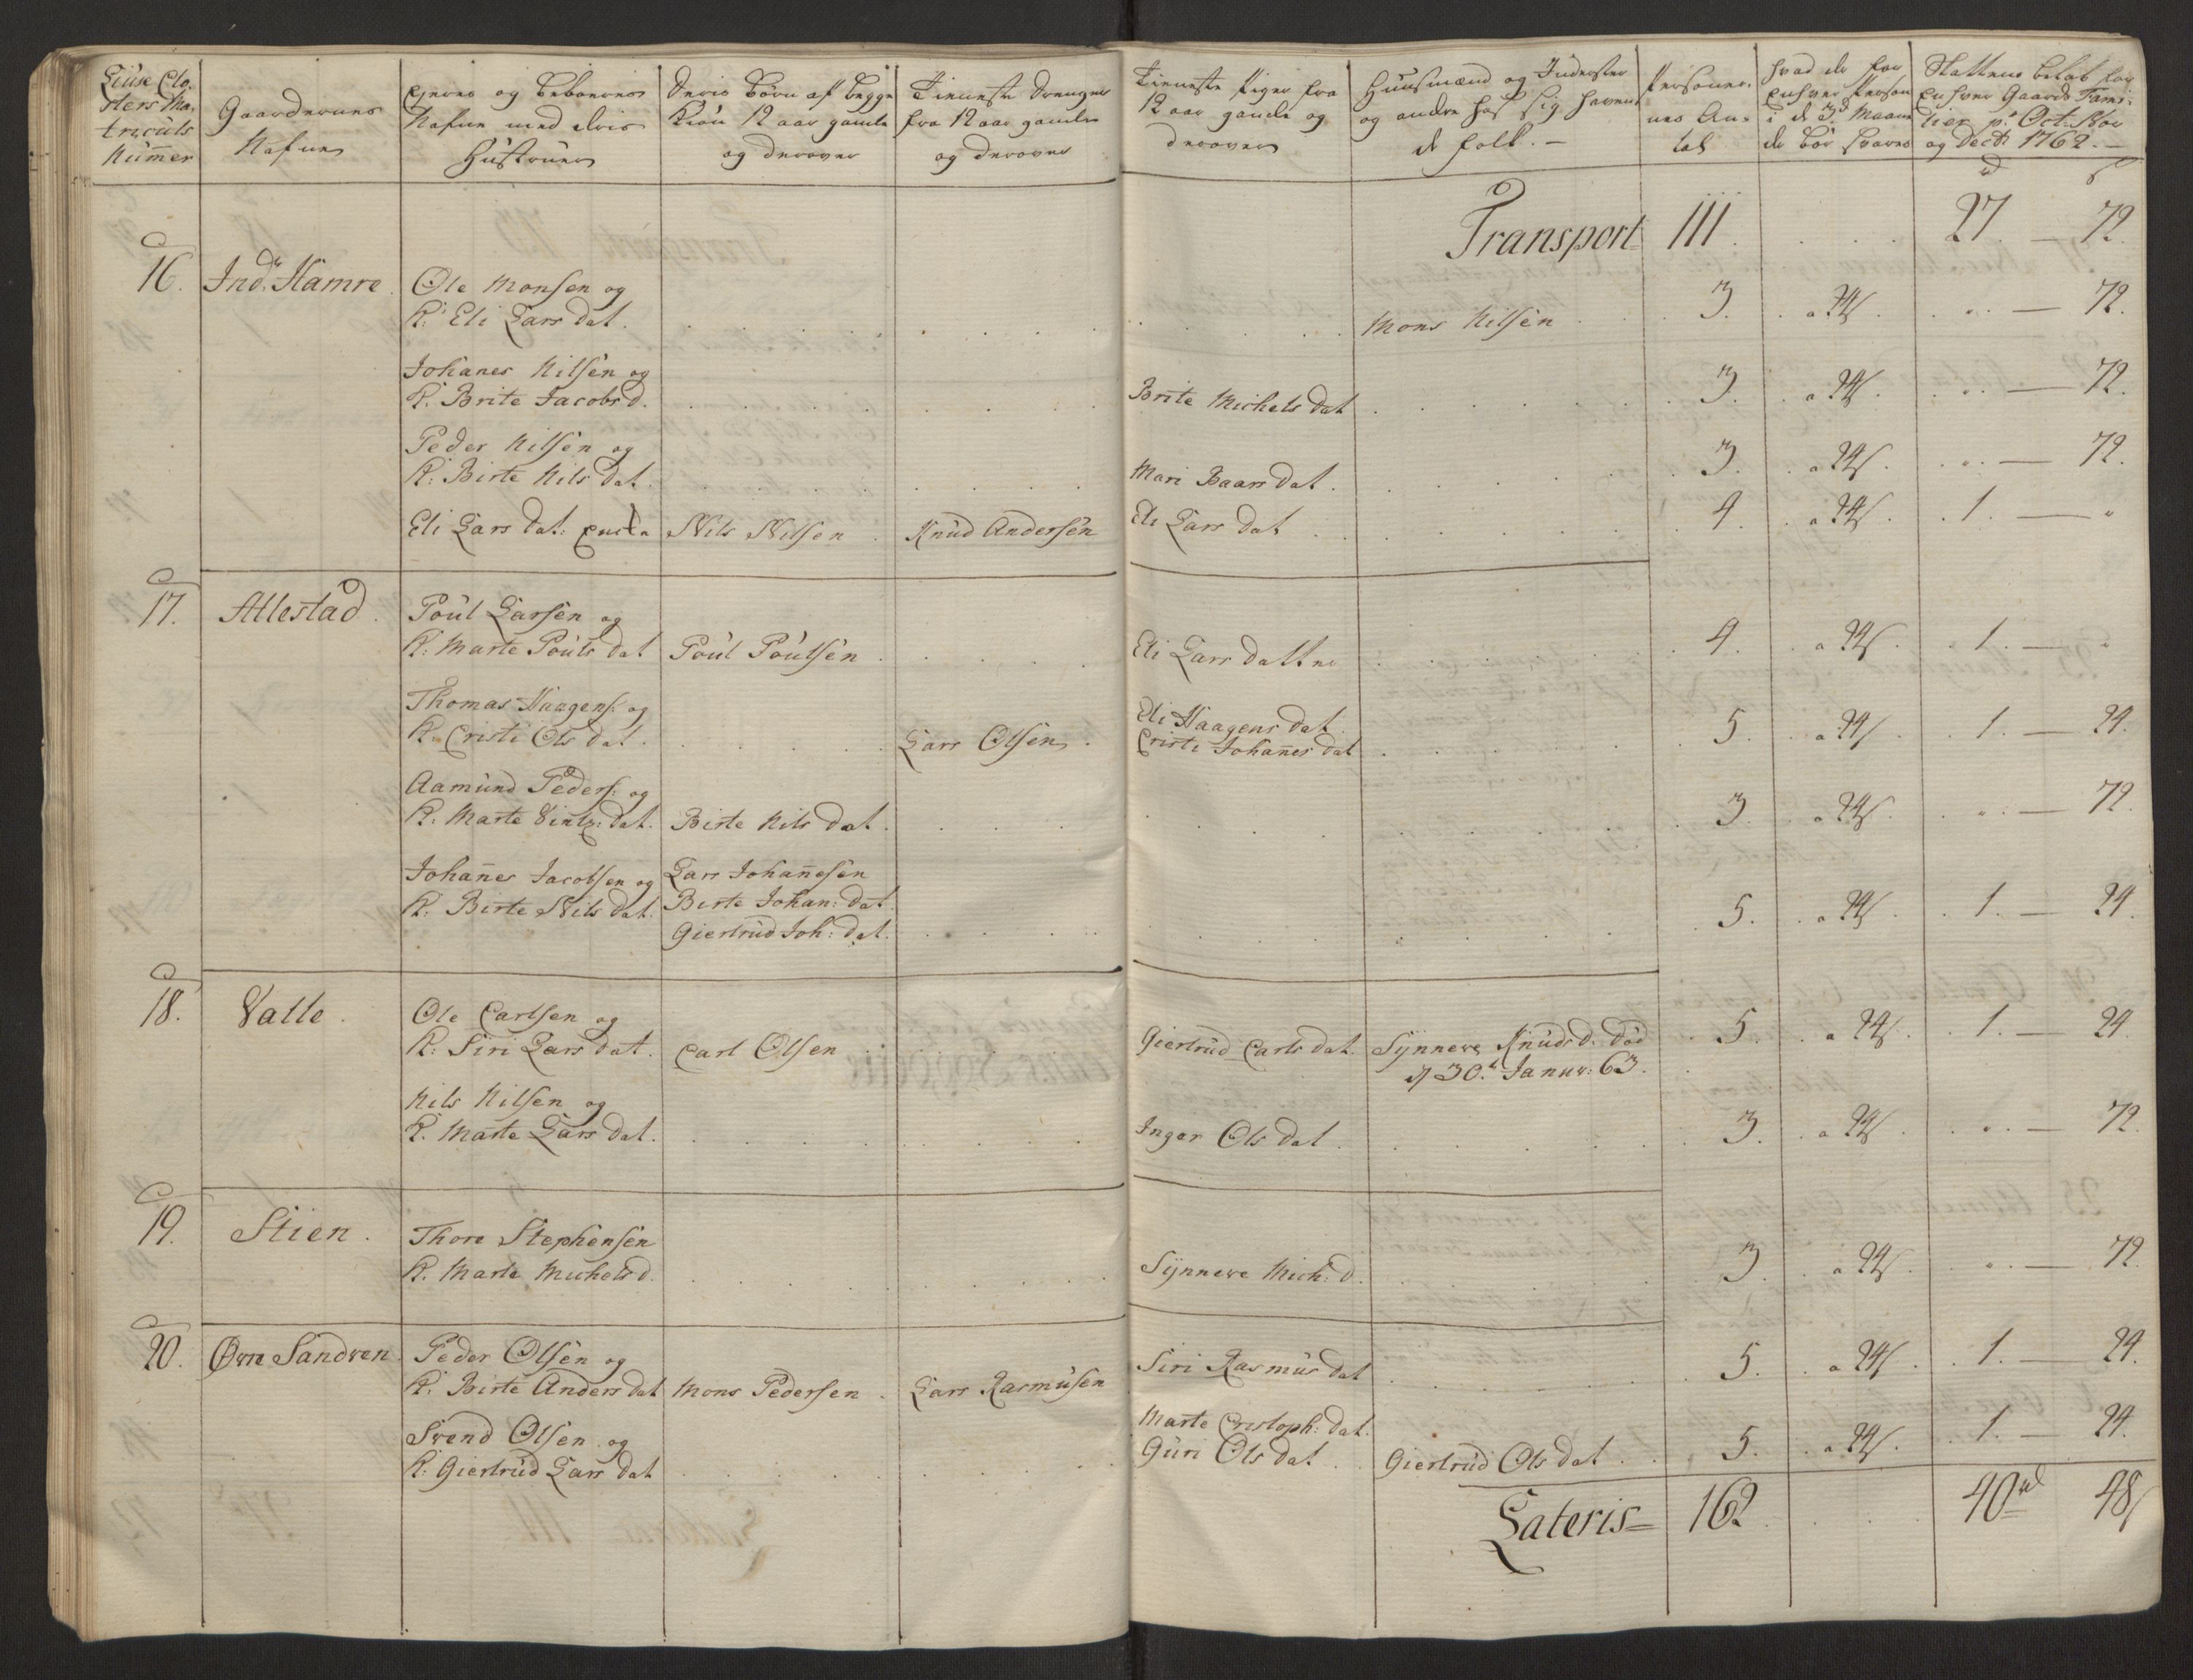 Lüse Clo-
sters Ma-
triculs
Nümer
Gaardernes
Nafne
Ejeres og Beboernes
Nafne med deris
Hüstruer
Deris Børn af begge
Kiøn 12 aar gamle
og derover
Tieneste Drenger
fra 12 aar gamle
og derover
Tieneste Piger fra
12 aar gamle og
derover
Huusmænd og Inderster
og andre hos sig haven-
de folk. -
Personer-
nes An-
tal
hvad der for
enhver Person
i de 3de Maan
der bør svares
Skattens beløb for
enhver Gaards Fami-
lier pr Oct: Nov
og Decbr 1762. -
Transport 111 27 - 72.
16. Ind: Hamre Ole Monsen og
K: Eli Lars dat. Mons Nilsen 3. a 24s. - 72.
Johanes Nilsen og
K. Brite Jacobs d. Brite Michels dat 3. a 24s. - 72.
Peder Nilsen og
K: Birte Nils dat. Mari Baars dat. 3. a 24s. - 72.
Eli Lars dat: Encke Nils Nilsen Knud Andersen Eli Lars dat 4. a 24s. 1. -
17. Allestad Poul Larsen og
K: Marte Pouls dat Poul Poulsen Eli Lars datter 4. a 24s. 1. -
Thomas Haagens: og
K. Cristi Ols dat. Lars Olsen. Eli Haagens dat
Cristi Johanes dat 5. a 24s. 1. - 24.
Aamund Peders: og
K: Marte Vintz: dat. Birte Nils dat. 3. a 24s. - 72.
Johanes Jacobsen og Lars Johanesen
K: Birte Nils dat. Berte Johan: dat.
Giertrud Joh: dat. 5. a 24s. 1. - 24.
18. Valle. Ole Carlsen og
K: Siri Lars dat. Carl Olsen Giertrud Carls dat. Synneve Knuds d: død
d 30t Janur: 63. 5. a 24s. 1. - 24.
Nils Nilsen og
K. Marte Lars dat. Inger Ols dat. 3. a 24s. - 72.
19. Stien. Thore Stephensen
K. Marte Michels d. Synneve Mich: d. 3. a 24s. - 72.
20. Øvre Sandven Peder Olsen og
K: Birte Anders dat Mons Pedersen. Lars Rasmusen Siri Rasmus dat 5. a 24s. 1. - 24.
Svend Olsen og
K: Giertrud Lars dat Marte Cristoph: dat.
Guri Ols dat Giertrud Ols dat. 5. a 24s. 1. - 24.
Lateris = 162 40 48s